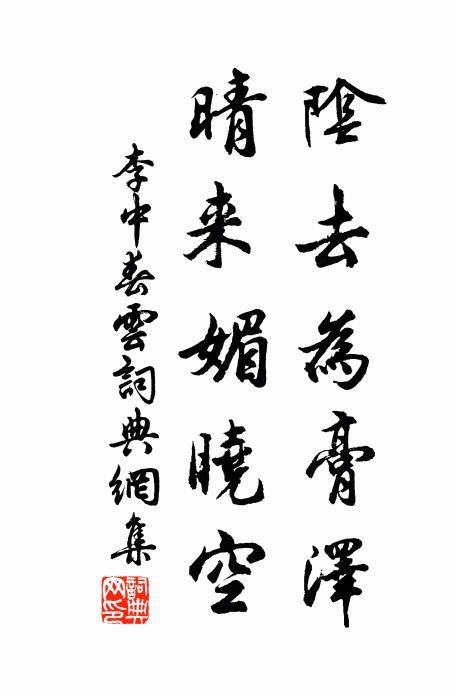 陰去為膏澤
晴来媚曉空
李中春雲詞典網集
詞典网印